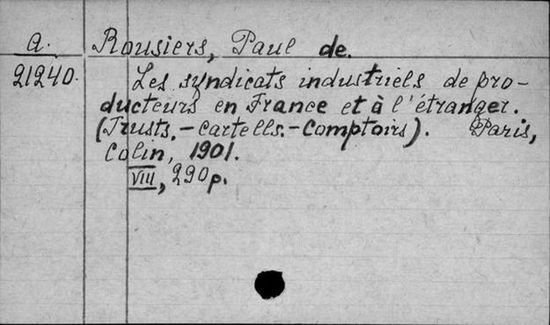 a. Rousiers, Paul de.
21240. Les syndicats industriels de pro-
ducteurs en France et à l'étranger.
(Trusts.-cartells.-Comptoirs). Paris,
Colin, 1901.
VIII, 290p.